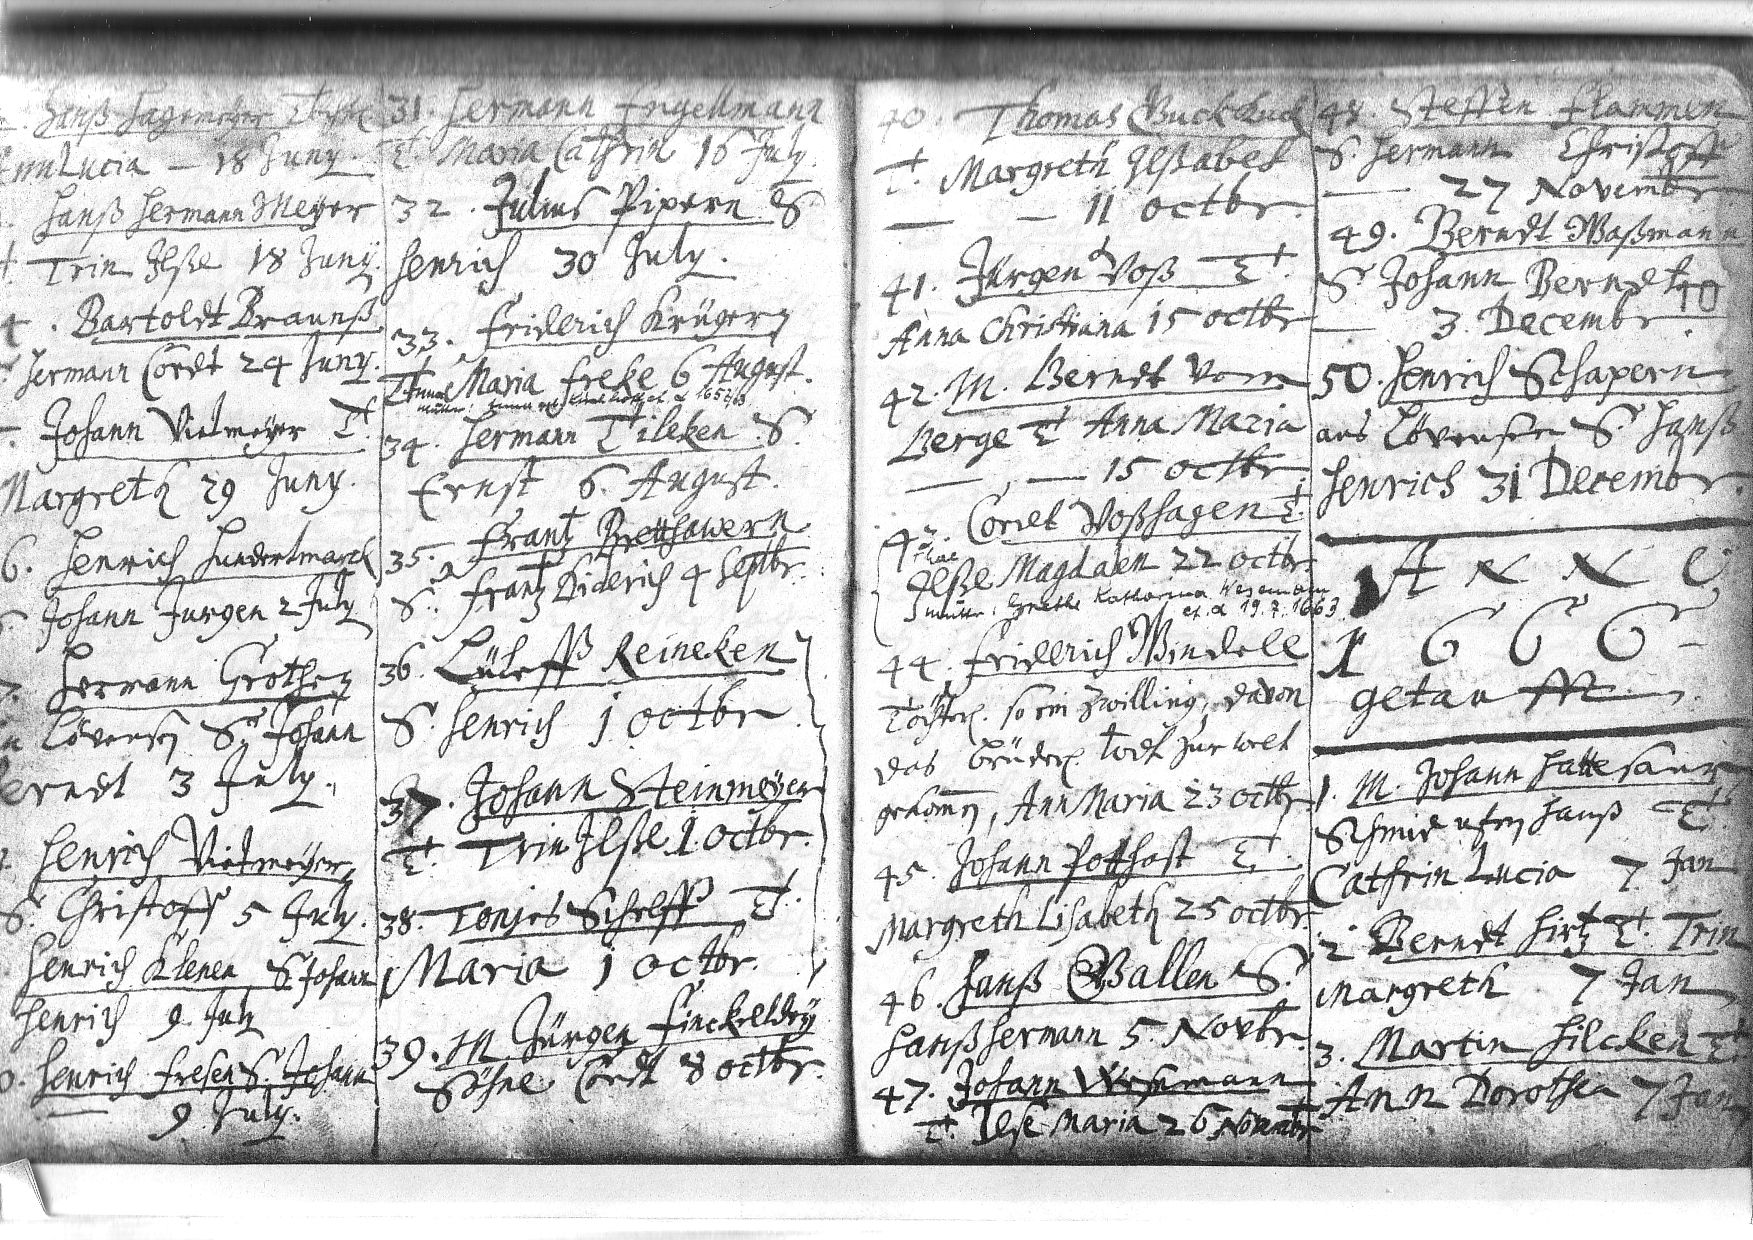 Hanß Hagemeyer
Ann Lucia — 18 Juny.
Hanß Hermann Meyer
T. Trin Ilße 18 Juny.
4. Bartoldt Braunß
S. Hermann Cordt 24 Juny.
Johann Vietmeyer T.
Margreth 29 Juny.
6. Henrich Hundertmarck
S. Johann Jurgen 2 July
7. Hermann Grothen
Lövensen S. Johann
Berndt 3 July.
Henrich Vietmeyer
S. Christoff 5 July.
Henrich Klenen S. Johann
Henrich 9 July
0. Henrich Fresen S. Johann
— 9 July.
31. Hermann Engellmann
T. Maria Cathrin 16 July.
32. Julius Pipern S
Henrich 30 July.
33. Friderich Krügern
T. Anna Maria Freke 6 August.
34. Hermann Tileken S.
Ernst 6. August.
35. Frantz Bretthawern
S. Frantz Diderich 4 Septbr.
36. Lüleff Reineken
S. Henrich 1 Octbr.
37. Johann Steinmeyer
T. Trin Ilße 1 Octbr.
38. Tonjes Schelff T.
Maria 1 Octbr.
39. M Jürgen Finckeldey
Söhne Cordt 8 Octbr.
40. Thomas Buckkuck
T. Margreth Ilßabet
— — 11 Octbr.
41. Jürgen Voß T.
Anna Christiana 15 Octbr
42. M. Berndt vom
Berge T Anna Maria
— , — 15 Octbr
43. Cordt Voßhagen T.
Ilße Magdalen 22 Octbr.
Mutter: Grethe Katharina Wesemann
et. a 19.7.1663
44. Friderich Windell
Tochter. so ein Zwilling, davon
das Brüderl. todt zur welt
gekomen, Ann Maria 23 Octbr.
45. Johann Potthast T.
Margreth Lisabeth 25 Octbr.
46. Hanß Ballen S.
Hanß Hermann 5. Novbr.
47. Johann Weßmann
T. Ilse Maria 26 Novembr
48. Steffen Flammen
S. Hermann Christoff
— 27 Novembr
49. Berndt Waßmann
S. Johann Berndt 10
— 3. Decembr.
50. Henrich Schapern
aus Lövensen S. Hanß
Henrich 31 Decembr.
ANNO
1666
getauffte.
1. M. Johann Hattesaur
Schmid Hanß T.
Cathrin Lucia 7 Jan
2 Berndt Hirtz T. Trin
Margreth 7 Jan
3. Martin Hilcken T.
Ann Dorothea 7 Jan